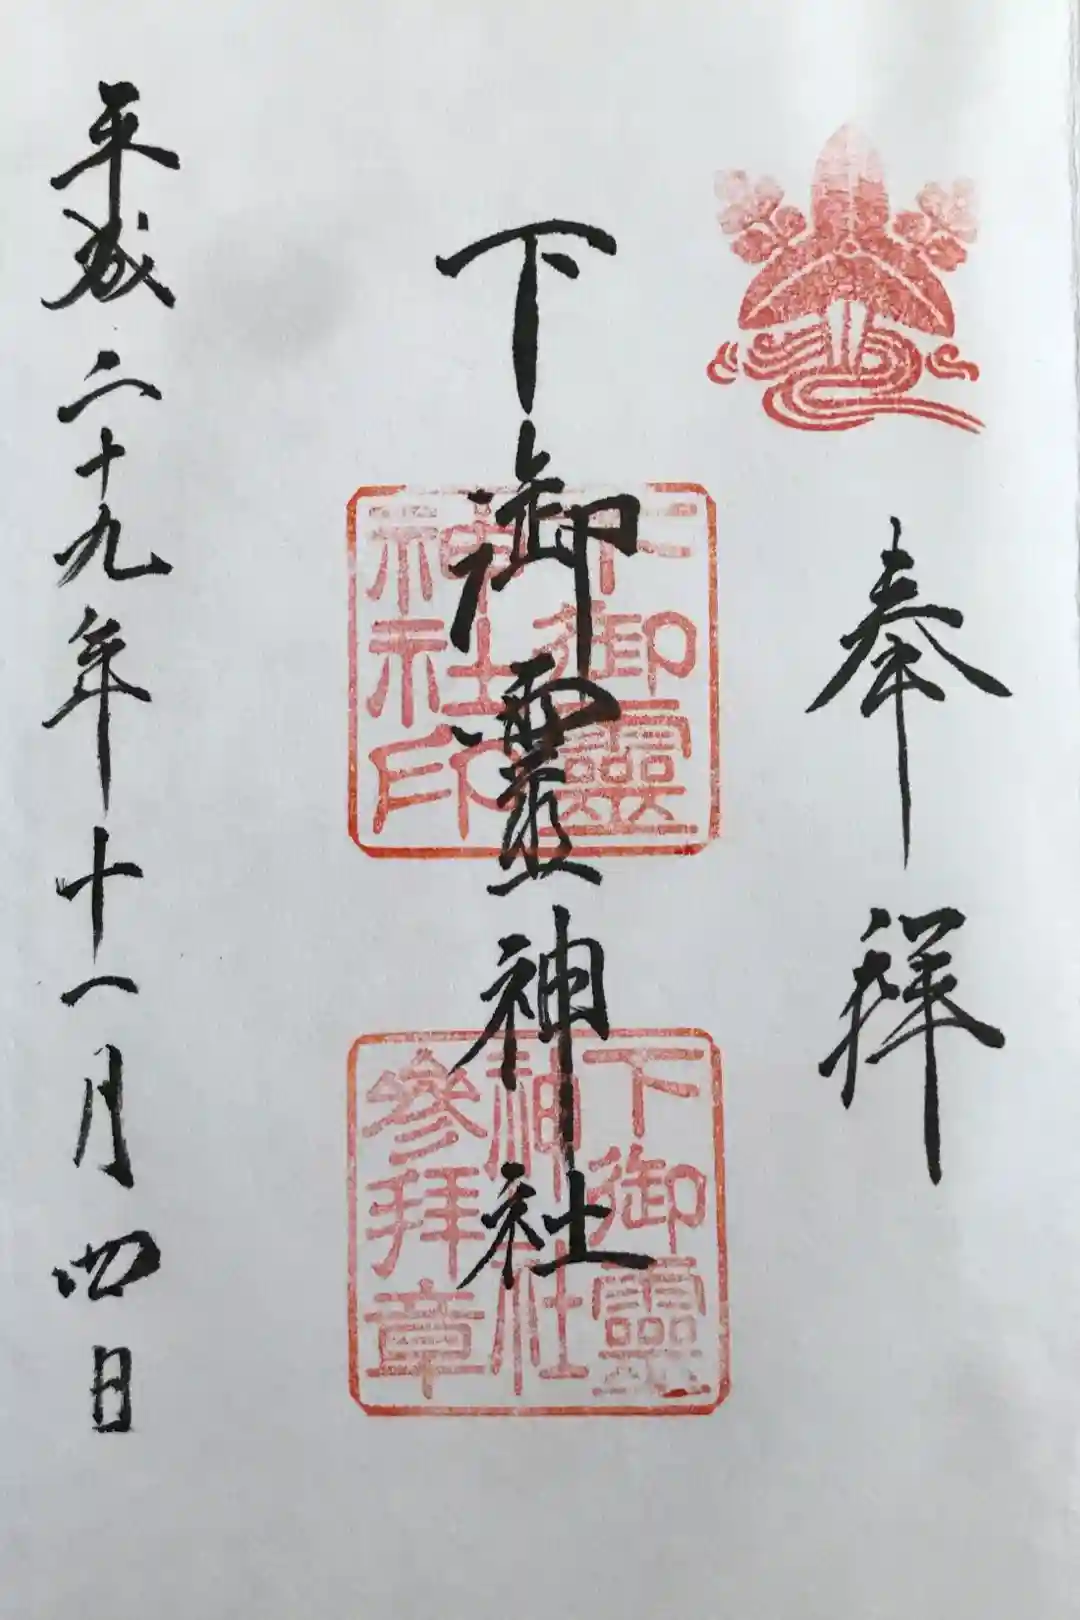 奉拝
下御靈神社
下御靈
神社印
下御靈
神社
參拜章
平成二十九年十一月四日